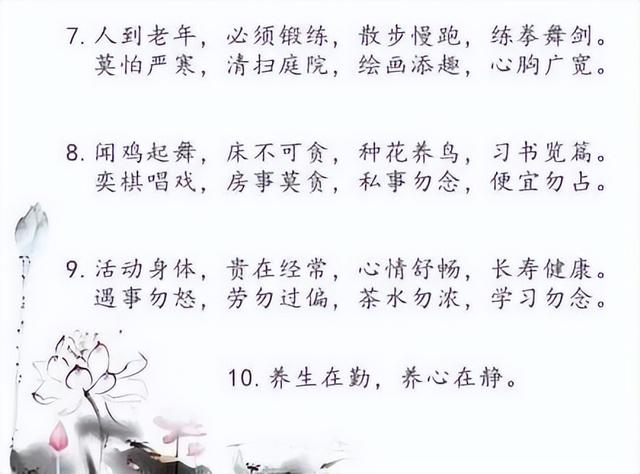 7. 人到老年，必须锻练，散步慢跑，练拳舞剑。
莫怕严寒，清扫庭院，绘画添趣，心胸广宽。
8. 闻鸡起舞，床不可贪，种花养鸟，习书览篇。
奕棋唱戏，房事莫贪，私事勿念，便宜勿占。
9. 活动身体，贵在经常，心情舒畅，长寿健康。
遇事勿怒，劳勿过偏，茶水勿浓，学习勿念。
10. 养生在勤，养心在静。